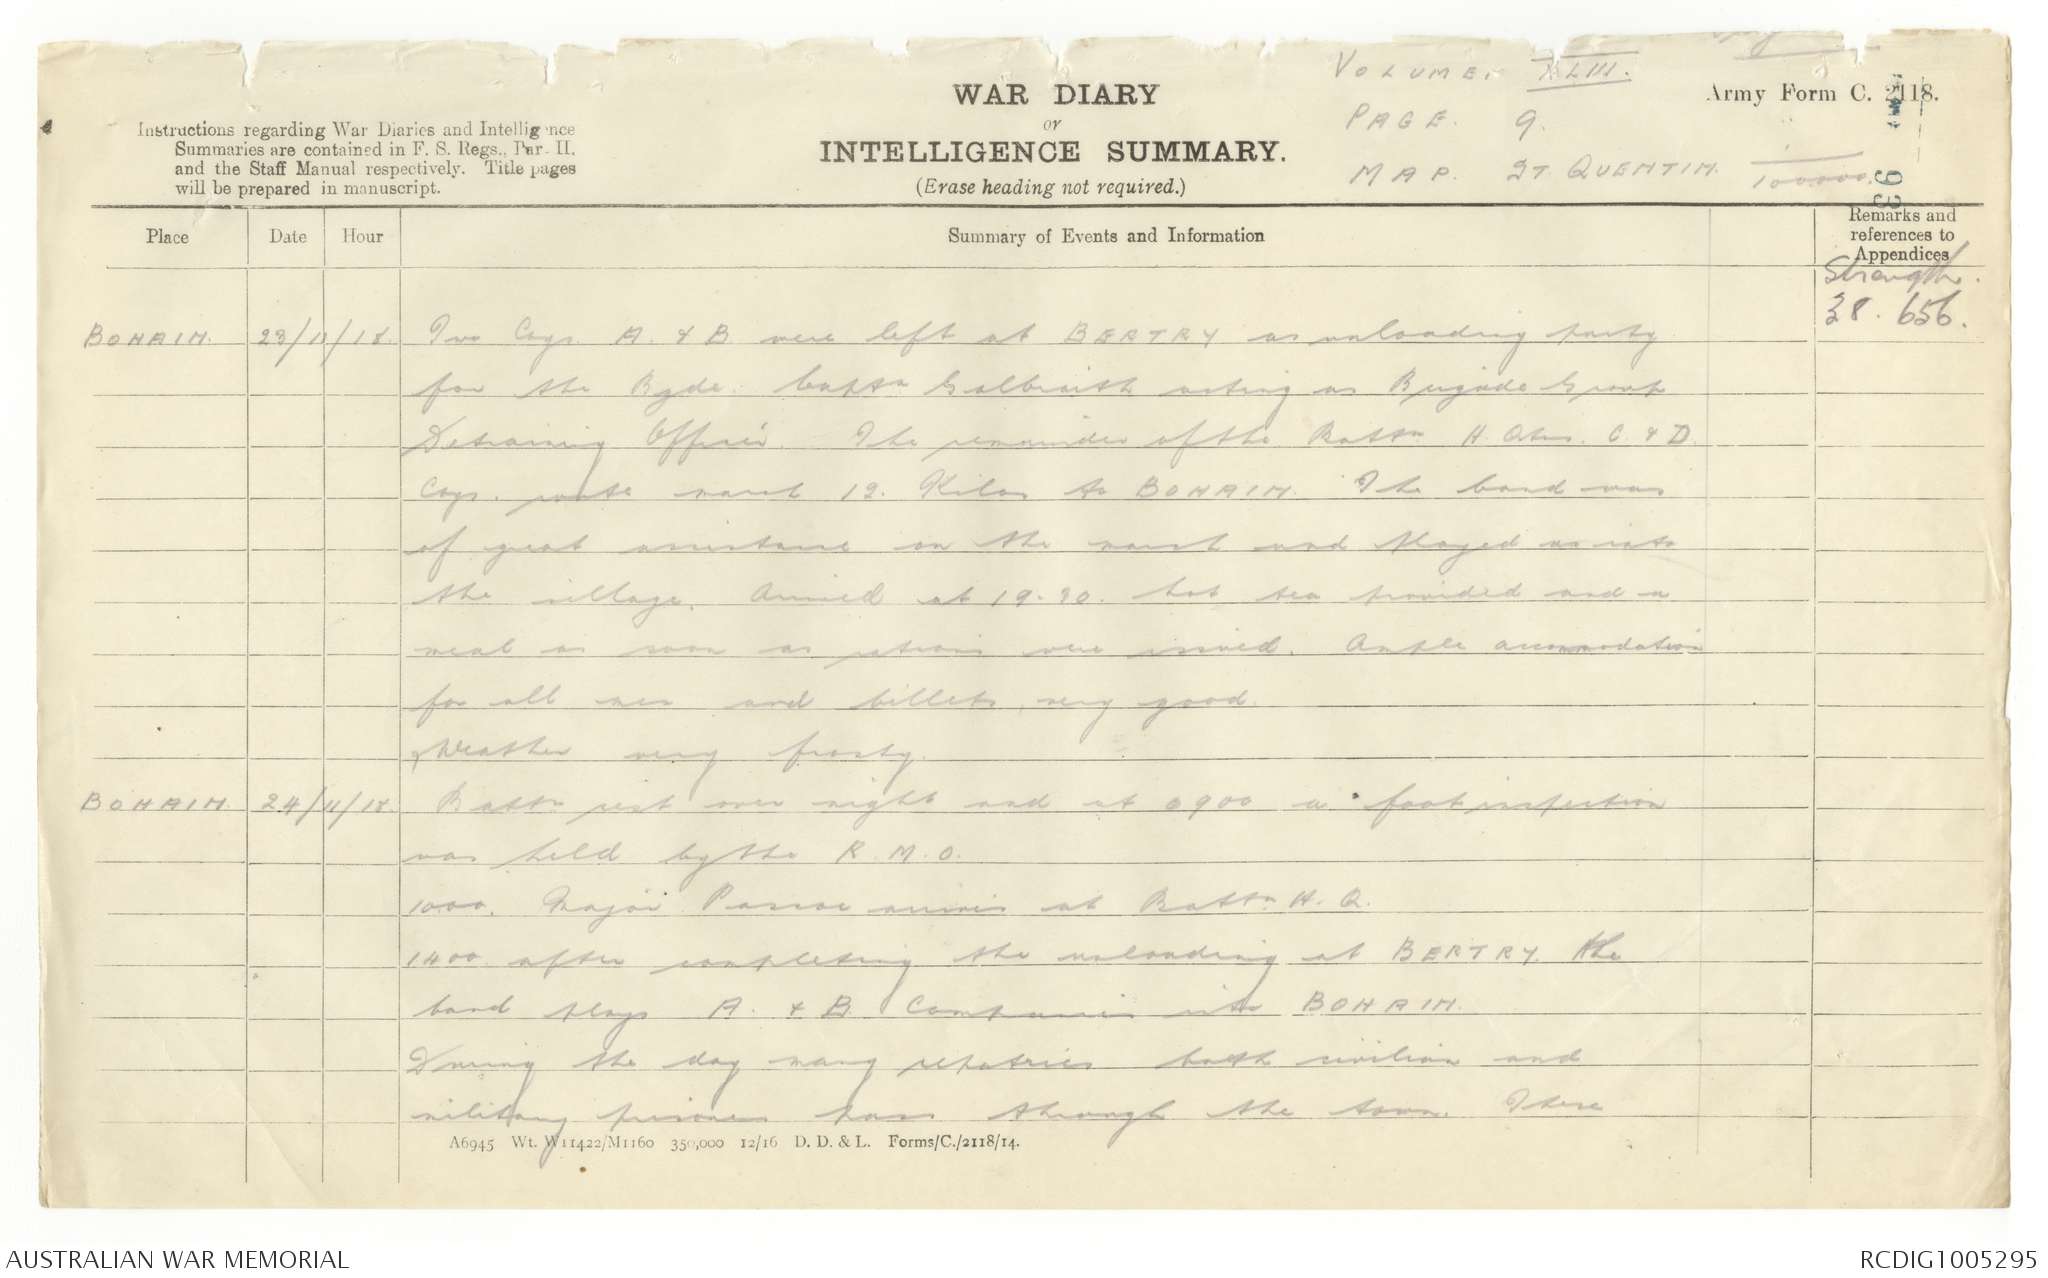 VOLUME. XLIII.
PAGE. 9.
MAP. ST QUENTIN. 1/100000.
Army Form C. 2118.
WAR DIARY
or
INTELLIGENCE SUMMARY.
(Erase heading not required.)
Instructions regarding War Diaries and Intelligence
Summaries are contained in F. S. Regs., Part II.
and the Staff Manual respectively. Title pages
will be prepared in manuscript.
Place Date Hour Summary of Events and Information Remarks and references to Appendices
Strength.
38. 656.
BOHAIN. 23/11/18. Two Coys. A. & B. were left at BERTRY as unloading party
for the Bgde. Captn Galbraith acting as Brigade Group
Detraining Officer. The remainder of the Battn H. Qtrs. C. & D.
Coys. route march 12. Kilos to BOHAIN. The band was
of great assistance on the march and played us into
the village. Arrived at 19.30. hot tea provided and a
meal as soon as rations were issued. Ample accommodation
for all men and billets very good.
Weather very frosty.
BOHAIN. 24/11/18. Battn rest over night and at 0900 a foot inspection
was held by the R. M. O.
1000. Major Pascoe arrives at Battn H. Q.
1400. after completing the unloading at BERTRY. the
band plays A. & B. Companies into BOHAIN.
During the day many repatries both civilian and
military prisoners pass through the town. These
A6945 Wt. W11422/M1160 350,000 12/16 D. D. & L. Forms/C./2118/14.
AUSTRALIAN WAR MEMORIAL
RCDIG1005295